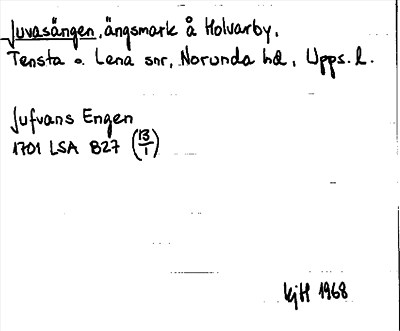 Juvasängen, ängsmark å Holvarby,
Tensta o. Lena snr, Norunda hd, Upps. l.
Jufvans Engen
1701 LSA B27 (13/1)
KjH 1968